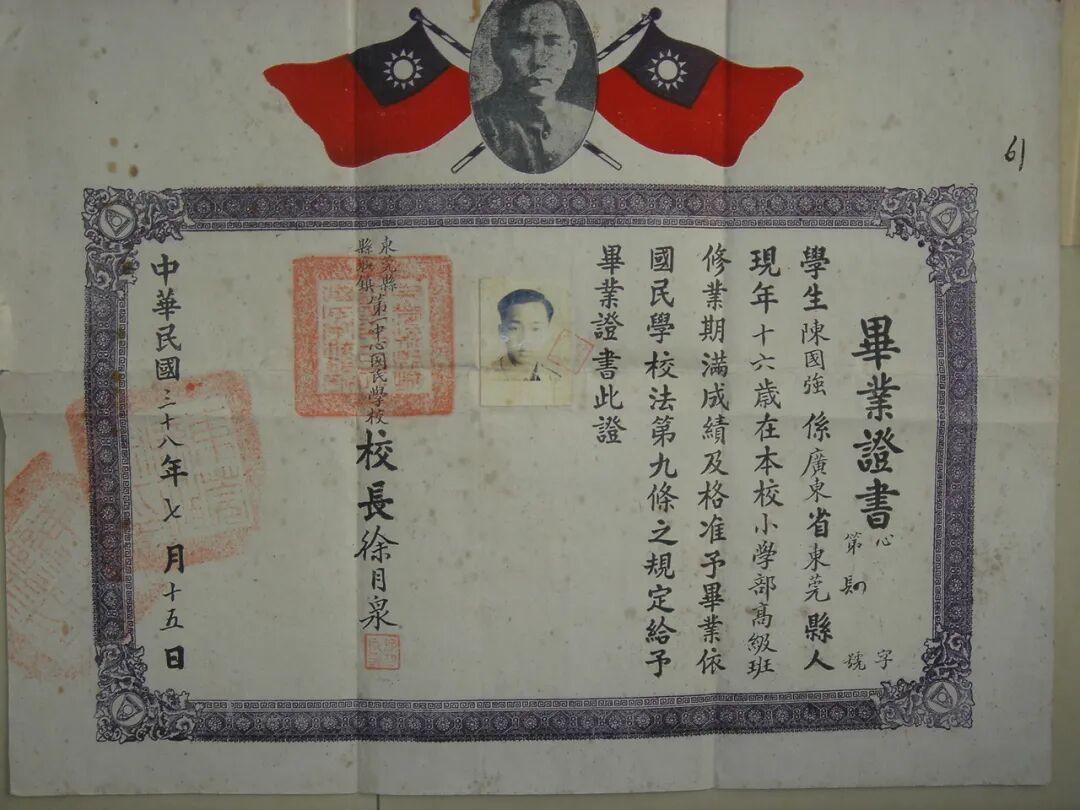 61
畢業證書
心 字
第 號
學生陳國強係廣東省東莞縣人
現年十六歲在本校小學部高級班
修業期滿成績及格准予畢業依
國民學校法第九條之規定給予
畢業證書此證
東莞縣
鎮
第一中心國民學校校長徐月泉
中華民國三十八年七月十五日